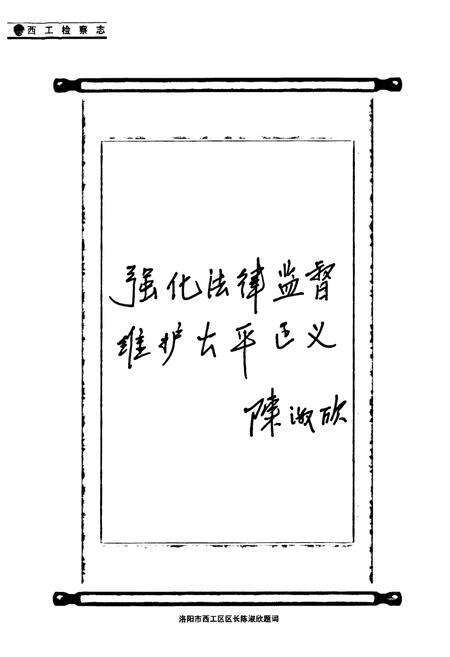 西工检察志
强化法律监督
维护公平正义
陈淑欣
洛阳市西工区区长陈淑欣题词